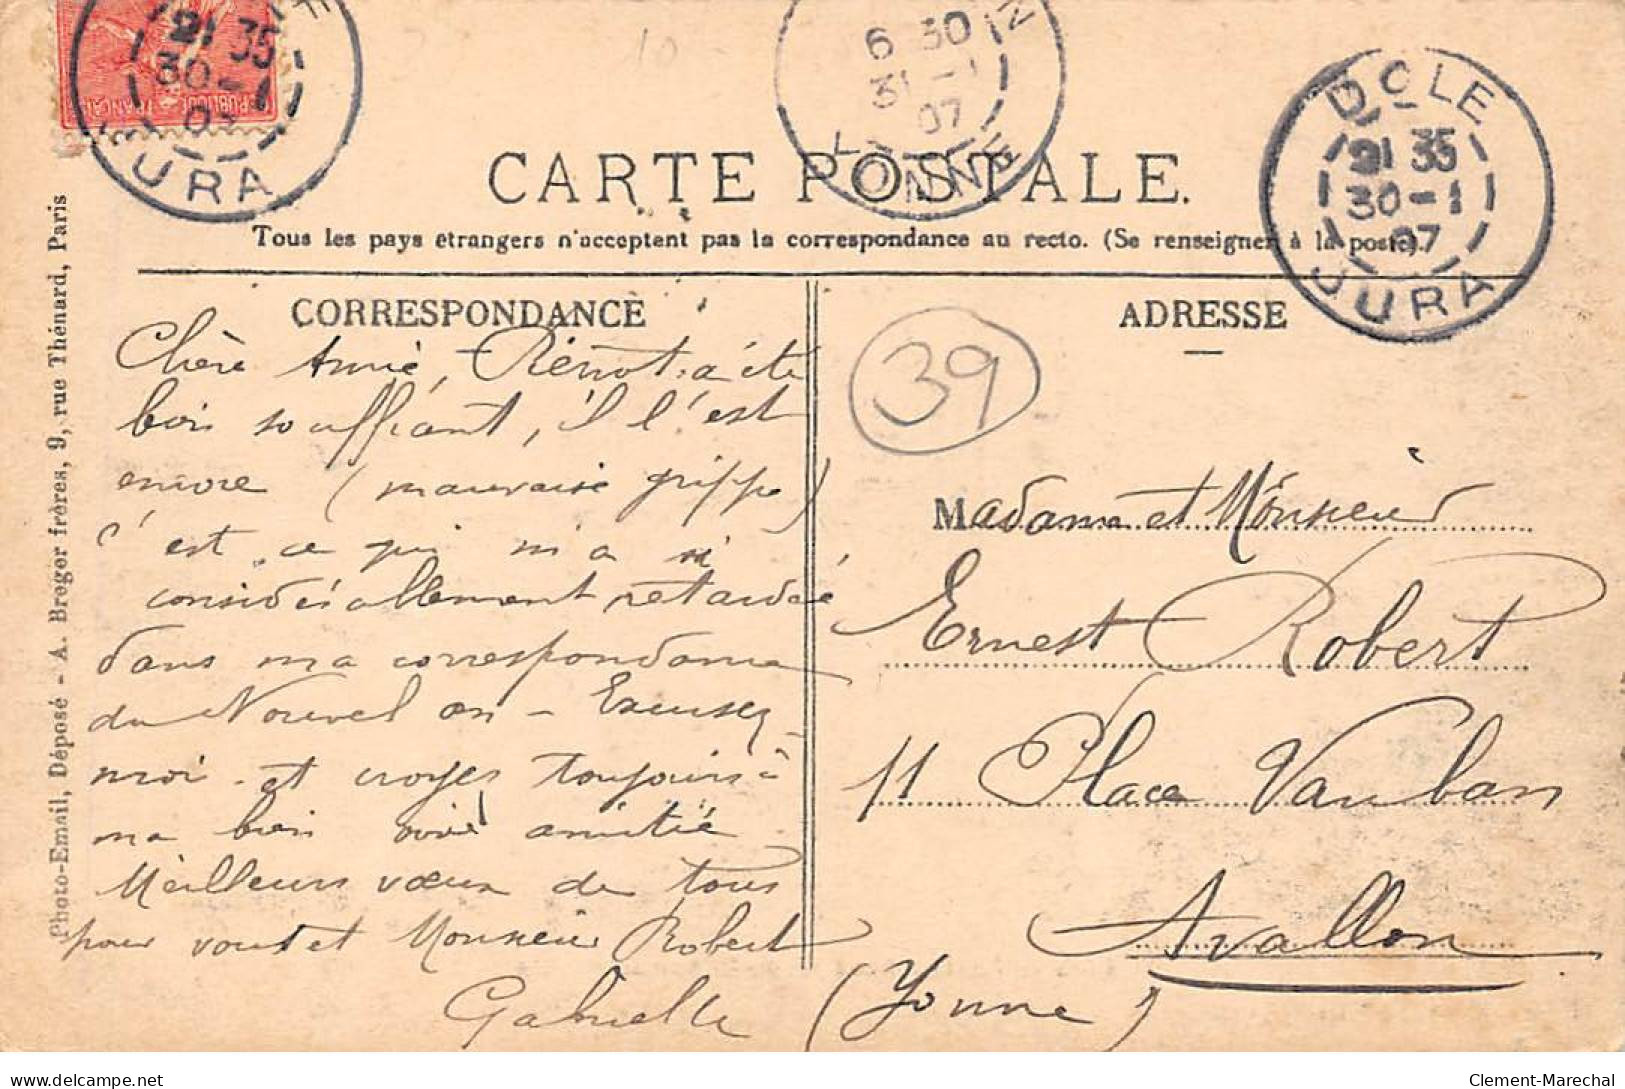 21 35
30-1
07
JURA
REPUBLIQUE FRANÇAISE
10
6 30
31-1
07
YONNE
DOLE
21 35
30-1
07
JURA
CARTE POSTALE.
Tous les pays étrangers n'acceptent pas la correspondance au recto. (Se renseigner à la poste).
CORRESPONDANCE
Chère Amie, a été
bien souffrant, il l'est
encore (mauvaise grippe)
c'est ce qui m'a si
considérablement retardée
dans ma correspondance
du Nouvel an - Excusez
moi et croyez toujours à
ma bien vive amitié
Meilleurs vœux de tous
pour vous et Monsieur Robert
Gabrielle
ADRESSE
39
Madame et Monsieur
Ernest Robert
11 Place Vauban
Avallon
(Yonne)
Photo-Email, Déposé - A. Breger frères, 9, rue Thénard, Paris
delcampe.net
Clement-Marechal